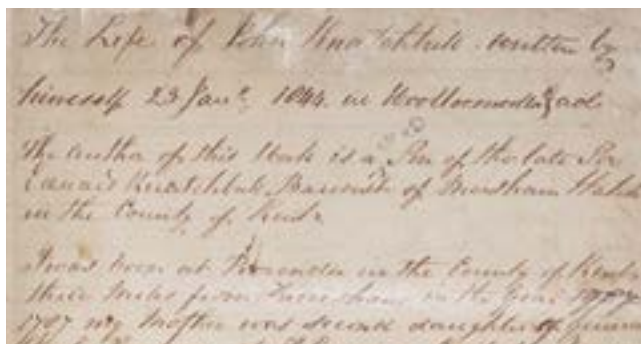 The Life of John Knatchbull written by
himself 23 Jany. 1844. in Woolloomoolloo Gaol
The Author of this Work is a Son of the late Sir
Edward Knatchbull, Baronet of Mersham Hatch
in the County of Kent
I was born at Provender in the County of Kent
three miles from Faversham in the Year
1787 my Mother was second daughter of